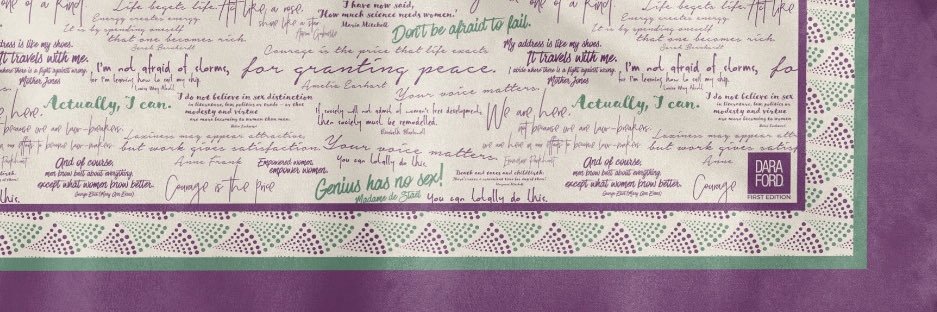 Life begets life.
Energy creates energy.
It is by spending oneself
that one becomes rich.
Sarah Bernhardt
Act like a rose.
I have now said,
"How much science needs women."
Maria Mitchell
Don't be afraid to fail.
Life begets life
Energy creates energy
It is by spending oneself
that one becomes rich.
Sarah Bernhardt
address is like my shoes.
It travels with me.
where there is a fight against wrong.
Mother Jones
I'm not afraid of storms,
for I'm learning how to sail my ship.
Louisa May Alcott
Courage is the price that life exacts
for granting peace.
Amelia Earhart
My address is like my shoes.
It travels with me.
I abide where there is a fight against wrong.
Mother Jones
I'm not afraid of storms,
for I'm learning how to sail my ship.
Louisa May Alcott
fo
are here.
Actually, I can.
I do not believe in sex distinction
in literature, law, politics or trade - or that
modesty and virtue
are more becoming to women than men.
Your voice matters.
If society will not admit of women's free development,
then society must be remodelled.
Elizabeth Blackwell
We are here,
not because we are law-breakers;
Actually, I can.
I do not believe in sex
modesty and virtue
because we are law-breakers;
Laziness may appear attractive,
but work gives satisfaction.
Anne Frank
Your voice matters.
You can totally do this.
Laziness may appear attr
but work gives satisf
Anne
And of course,
men know best about everything,
except what women know better.
George Eliot (Mary Ann Evans)
Courage is the price
Empowered women,
empower women.
Genius has no sex!
Madame de Staël
You can totally do this.
And of course,
men know best about everything,
except what women know better.
George Eliot (Mary Ann Evans)
Courage
DARA
FORD
FIRST EDITION